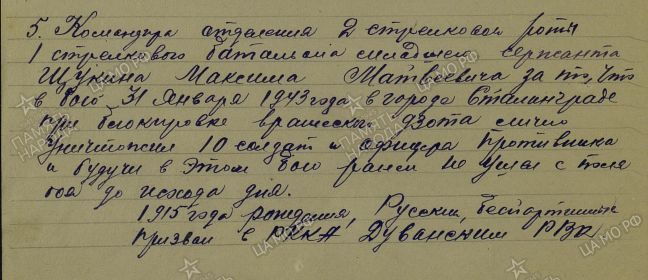 5. Командира отделения 2 стрелковой роты
1 стрелкового баталиона младшего сержанта
Щукина Максима Матвеевича за то, что
в бою 31 Января 1943 года в городе Сталинграде
при блокировке вражеского дзота лично
уничтожил 10 солдат и офицера противника
и будучи в этом бою ранен не ушел с поля
боя до исхода дня.
1915 года рождения, Русский, беспартийный
призван в РККА Дуванским РВК